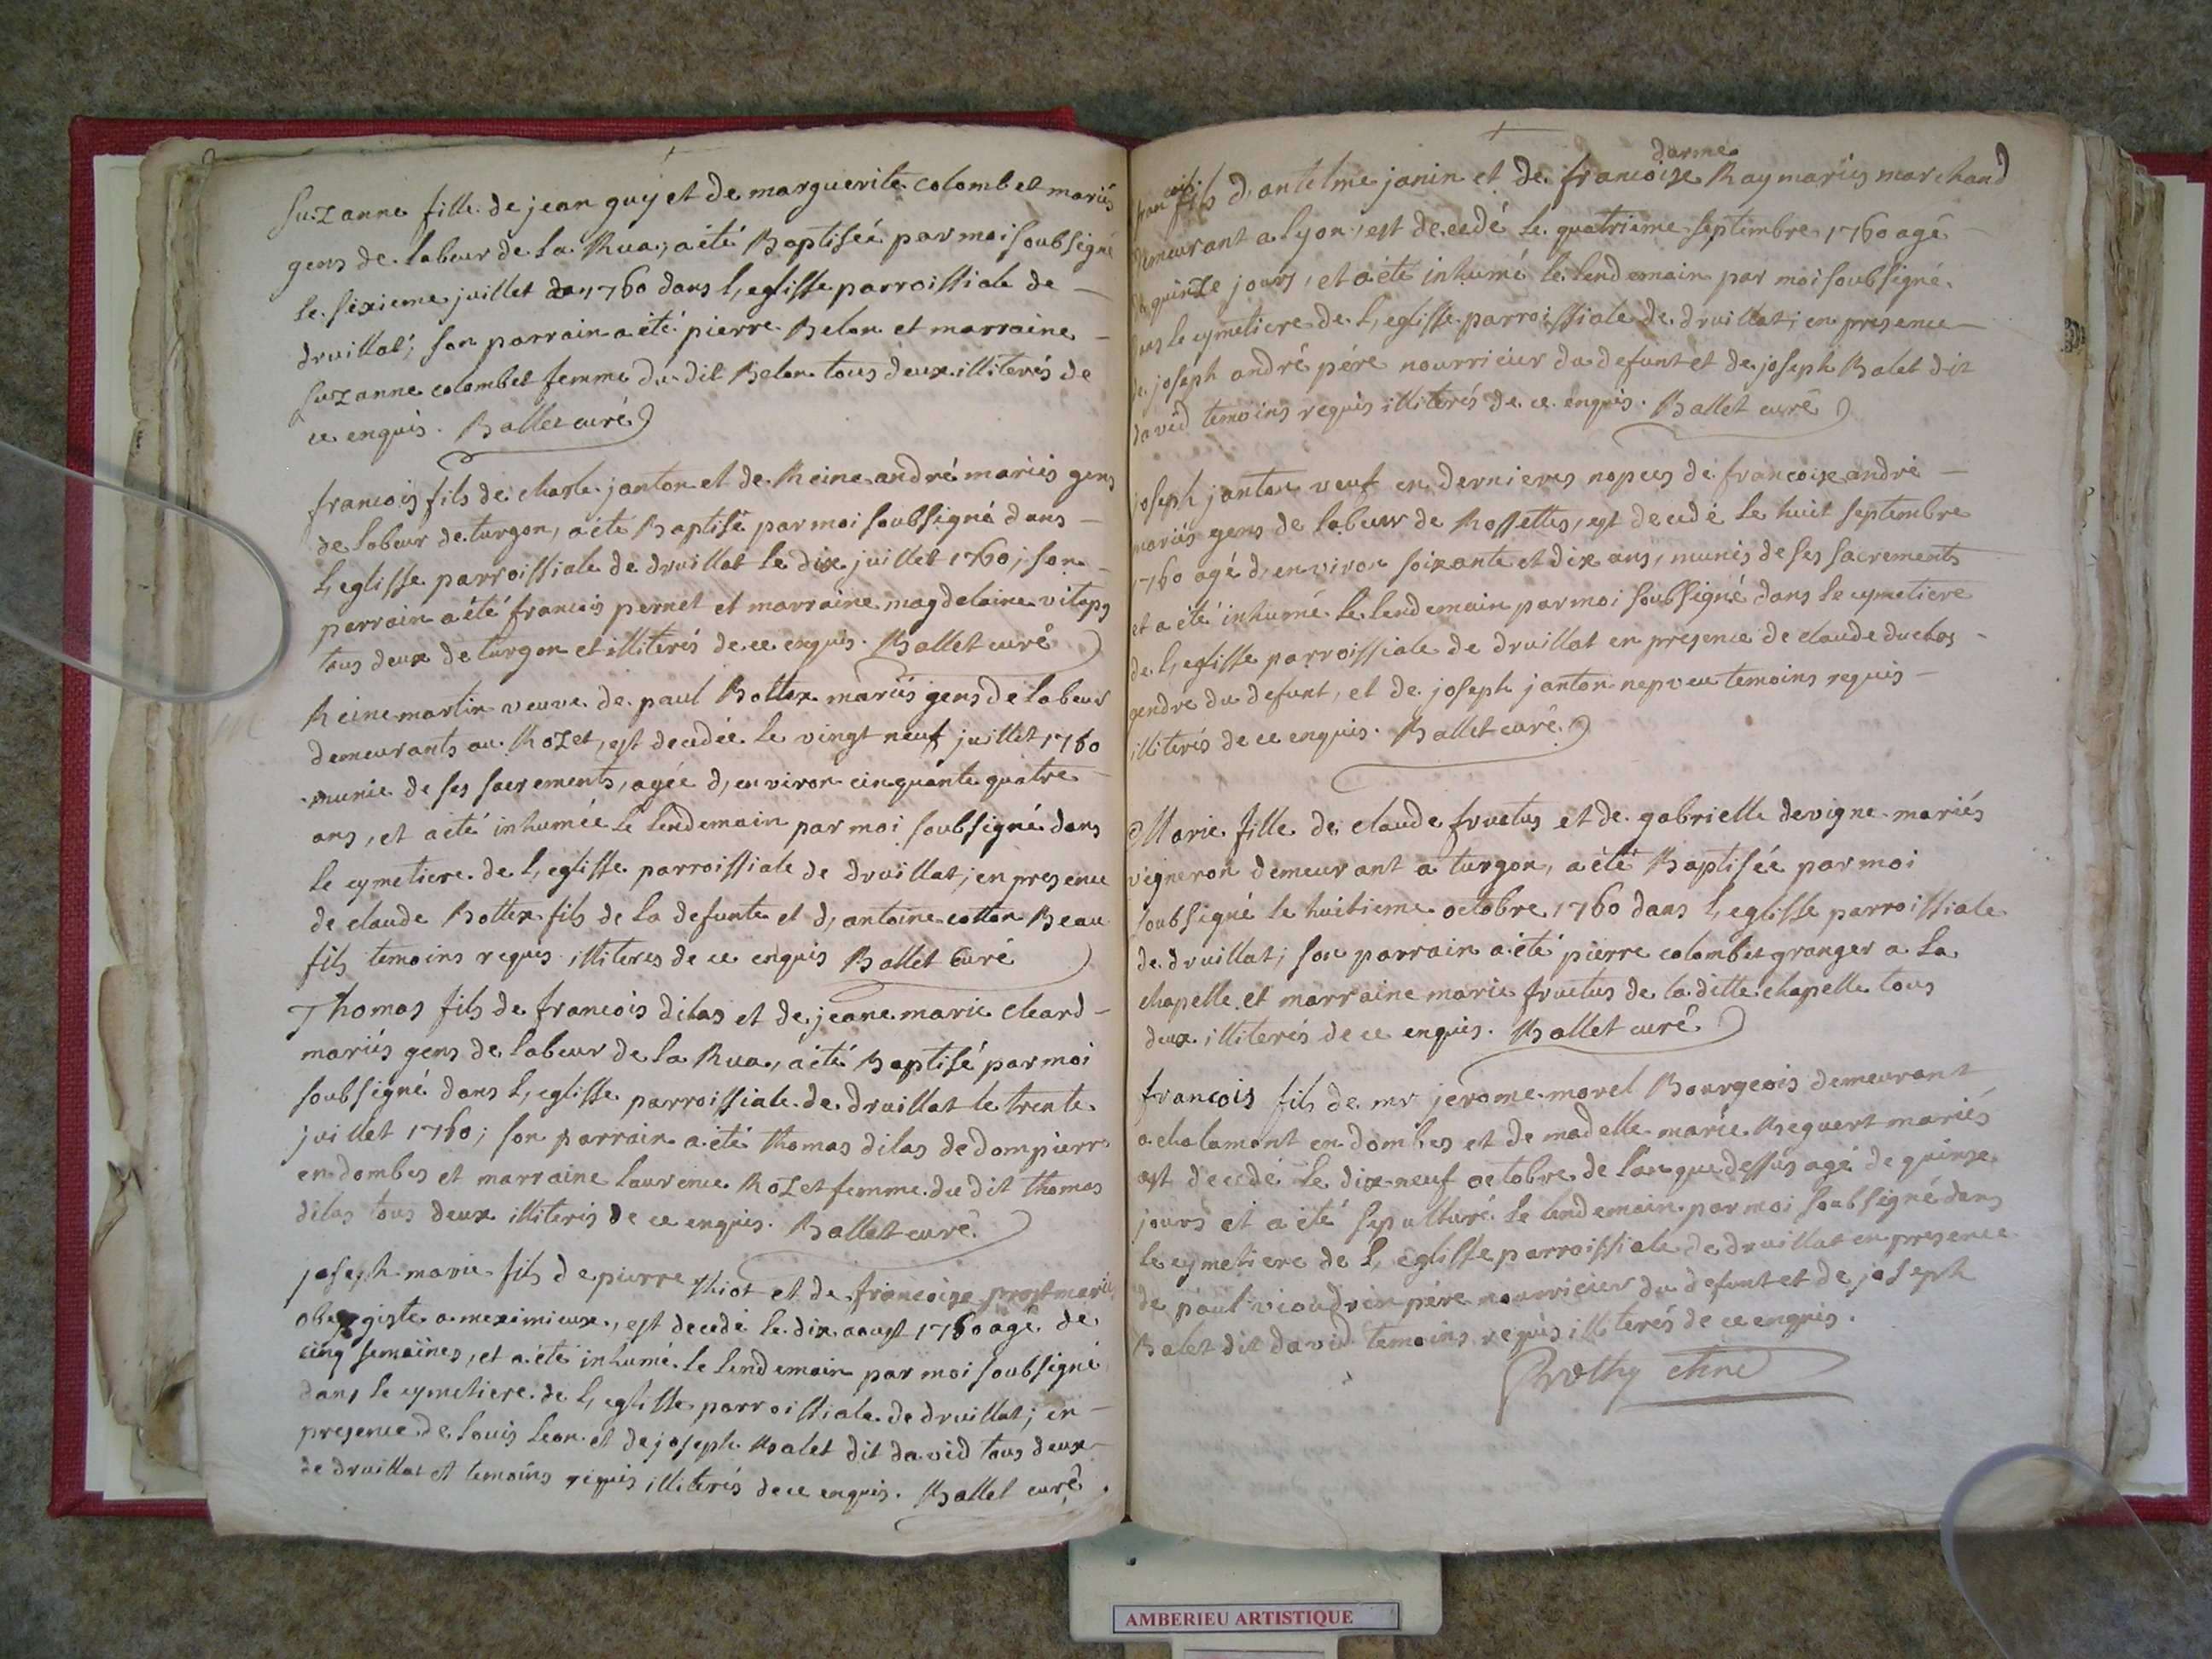 Suzanne fille de jean guy et de marguerite colombet mariés
gens de labeur de la Rua, a été Baptisée par moi soubsigné
le sixieme juillet 1760 dans l'eglisse parroissiale de
druillat; son parrain a été pierre Belon et marraine
suzanne colombet femme du dit Belon tous deux illiterés de
ce enquis. Ballet curé
francois fils de charle janton et de Reine andré mariés gens
de labeur de turgon, a été Baptisé par moi soubsigné dans
l'eglisse parroissiale de druillat le dix juillet 1760; son
parrain a été francois pernet et marraine magdelaine
tous deux de turgon et illiterés de ce enquis. Ballet curé
Reine martin veuve de paul Bottex mariés gens de labeur
demeurants au Rozet, est decedée le vingt neuf juillet 1760
munie de ses sacrements, agée d'environ cinquante quatre
ans, et a été inhumée le lendemain par moi soubsigné dans
le cymetiere de l'eglisse parroissiale de druillat; en presence
de claude Bottex fils de la defunte et d'antoine cotton Beau
fils temoins requis illiteres de ce enquis Ballet Curé
Thomas fils de francois dilas et de jeane marie cleard
mariés gens de labeur de la Rua, a été Baptisé par moi
soubsigné dans l'eglisse parroissiale de druillat le trente
juillet 1760; son parrain a été thomas dilas de dompierre
en dombes et marraine laurence Rozet femme du dit thomas
dilas tous deux illiterés de ce enquis. Ballet curé
joseph marie fils de pierre thiot et de francoise prost mariés
a meximieux, est decedé le dix aoust 1760 agé de
cinq semaines, et a été inhumé le lendemain par moi soubsigné
dans le cymetiere de l'eglisse parroissiale de druillat; en
presence de louis leon et de joseph Balet dit david tous deux
de druillat et temoins requis illiterés de ce enquis. Ballet curé
francois fils d'antelme janin et de francoise darme Ray mariés marchand
demeurant a lyon, est decedé le quatrieme septembre 1760 agé
de quinze jours, et a été inhumé le lendemain par moi soubsigné
dans le cymetiere de l'eglisse parroissiale de druillat; en presence
de joseph andré pére nourricier du defunt et de joseph Balet dit
david temoins requis illiterés de ce enquis. Ballet curé
joseph janton veuf en dernieres nopces de francoise andré
mariés gens de labeur de Rossettes, est decedé le huit septembre
1760 agé d'environ soixante et dix ans, munis de ses sacrements
et a été inhumé le lendemain par moi soubsigné dans le cymetiere
de l'eglisse parroissiale de druillat en presence de claude duclos
gendre du defunt, et de joseph janton nepveu temoins requis
illiterés de ce enquis. Ballet curé
Marie fille de claude fructus et de gabrielle devigne mariés
vigneron demeurant a turgon, a été Baptisée par moi
soubsigné le huitieme octobre 1760 dans l'eglisse parroissiale
de druillat; son parrain a été pierre colombet granger a la
chapelle et marraine marie fructus de la ditte chapelle tous
deux illiterés de ce enquis. Ballet curé
francois fils de mr jerome morel Bourgeois demeurant
a chalamont en dombes et de madelle marie Reguert mariés
est decedé le dix neuf octobre de l'an que dessus agé de quinze
jours et a été sepulturé le lendemain par moi soubsigné dans
le cymetiere de l'eglisse parroissiale de druillat en presence
de paul vioudrin pére nourricier du defunt et de joseph
Balet dit david temoins requis illiterés de ce enquis.
AMBERIEU ARTISTIQUE